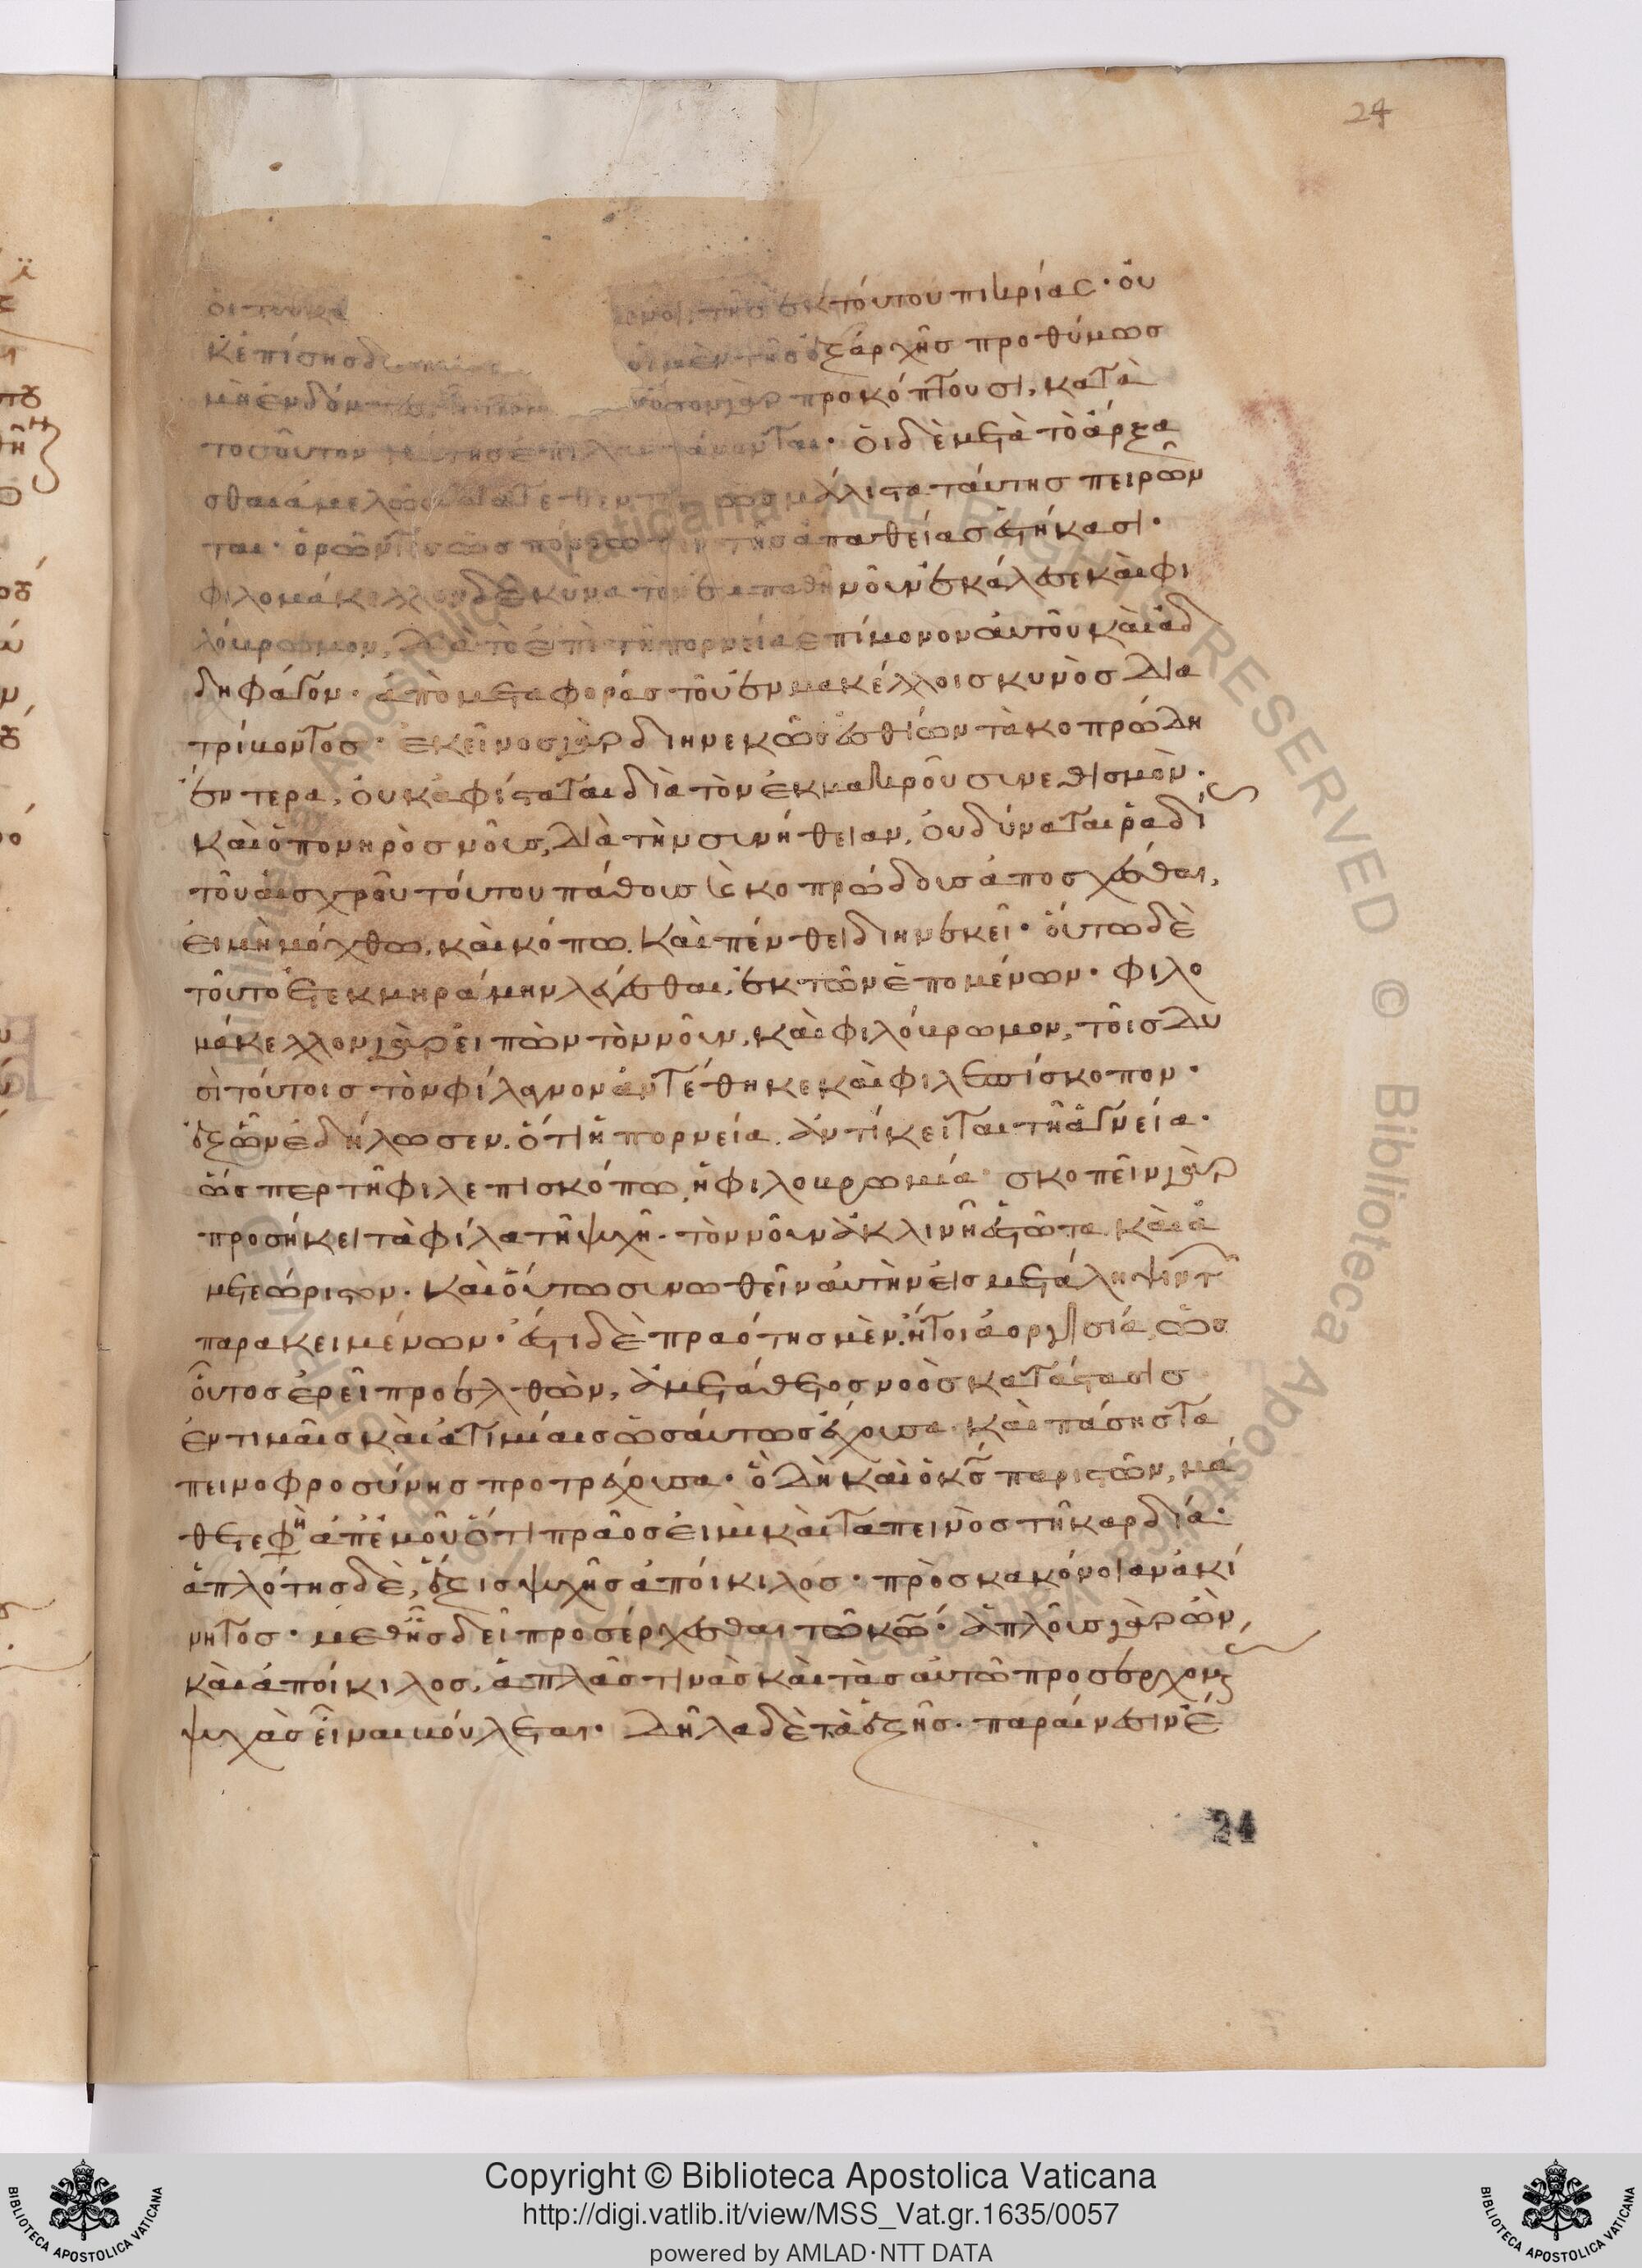 24
τούτου πικρίας· οὐ
ἐξαρχῆσ προθύμωσ
προκόπτουσι, κατὰ
τοσοῦτον · ὁι δὲ μετὰ τὸ ἄρξα
σθαι μάλιστα ταύτησ πειρῶν
ται· ὁρῶντεσ ὡσ πόρρω τῆσ ἀπαθείασ ἑστήκασι·
φιλομάκελλον δὲ κύνα τὸν ἐμπαθῆ νοῦν ἐκάλεσε καὶ φι
λόβρωμον, διὰ τὸ ἐπὶ τῆ πορνεία ἐπίμονον αὐτοῦ καὶ ἀδ
δηφάγον· ἀπὸ μεταφοράσ τοῦ ἐν μακέλλοισ κυνὸσ δια
τρίβοντοσ· ἐκεῖνοσ γὰρ διηνεκῶσ ἐσθίων τὰ κοπρώδη
ἔντερα, οὐκ ἀφίσταται διὰ τὸν ἐκ μακροῦ συνεθισμὸν·
καὶ ὁ πονηρὸσ νοῦσ, διὰ τὴν συνήθειαν, οὐ δύναται ῥαδί
τοῦ αἰσχροῦ τούτου πάθουσ κοπρώδουσ ἀποσχέσθαι,
εἰ μὴ μόχθω, καὶ κόπω, καὶ πένθει διηνεκεῖ· οὕτω δὲ
τοῦτο ἐτεκμηράμην λέγεσθαι, ἐκ τῶν ἑπομένων· φιλο
μάκελλον γὰρ εἰπὼν τὸν νοῦν, καὶ φιλόβρωμον, τοῖσ δυ
σὶ τούτοισ τὸν φίλαγνον ἀντέθηκε καὶ φιλεπίσκοπον·
ἐξ ὧν ἐδήλωσεν, ὅτι ἡ πορνεία ἀντίκειται τῆ ἁγνεία·
ὥσπερ τῆ φιλεπισκόπω, ἡ φιλοβρωμία σκοπεῖν γὰρ
προσήκει τὰ φίλα τῆ ψυχῆ· τὸν νοῦν ἀκλινῆ ἑστῶτα καὶ ἀ
μετεώριστον· καὶ οὕτω συνωθεῖν αὐτὴν εἰσ μετάληψιν τῶν
παρακειμένων· ἔστι δὲ πραότησ μὲν, ἤτοι ἀοργησία, ὡσ
οὗτοσ ἐρεῖ προελθὼν, ἀμετάθετοσ νοὸσ κατάστασισ
ἐν τιμαῖσ καὶ ἀτιμίαισ ὡσαύτωσ ἔχουσα καὶ πάσησ τα
πεινοφροσύνησ προτρέχουσα· ὃ δὴ καὶ ὁ κ̅σ̅ παριστῶν, μά
θετε φη ἀπ' ἐμοῦ ὅτι πρᾶοσ εἰμὶ καὶ ταπεινὸσ τῆ καρδία·
ἁπλότησ δὲ, ἕξισ ψυχῆσ ἀποίκιλοσ· πρὸσ κακόνοιαν ἀκί
νητοσ· μεθ' ἧσ δεῖ προσέρχεσθαι τῶ κ̅ω̅· ἁπλοῦσ γὰρ ὢν,
καὶ ἀποίκιλοσ, ἁπλᾶσ τινὰσ καὶ τὰσ αὐτῶ προσερχομ
ψυχὰσ εἶναι βούλεται· δῆλα δὲ τὰ ἑξῆσ· παραίνεσιν ἐ
24
Copyright © Biblioteca Apostolica Vaticana
http://digi.vatlib.it/view/MSS_Vat.gr.1635/0057
powered by AMLAD·NTT DATA